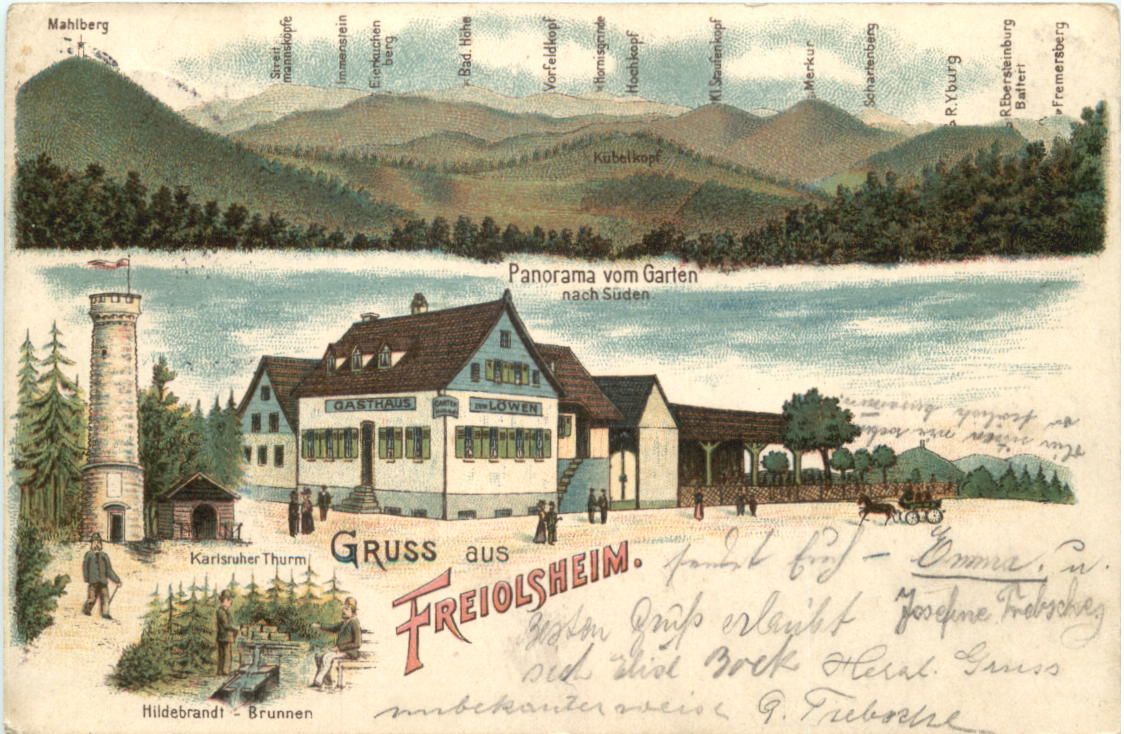 Mahlberg
Streit
mannsköpfe
Immenstein
Eierkuchen
berg
Bad. Höhe
Vorfeldkopf
Hornisgrinde
Hochkopf
Kl. Staufenkopf
Merkur
Schartenberg
R. Yburg
R. Ebersteinburg
Battert
Fremersberg
Kübelkopf
Panorama vom Garten
nach Süden
GASTHAUS
GARTEN
ZUM LÖWEN
Karlsruher Thurm
GRUSS aus
FREIOLSHEIM.
sendet Euch – Emma. u.
Josefine
Besten Gruß erlaubt
sich Elise Bock Herzl. Gruss
unbekanterweise G.
Hildebrandt - Brunnen